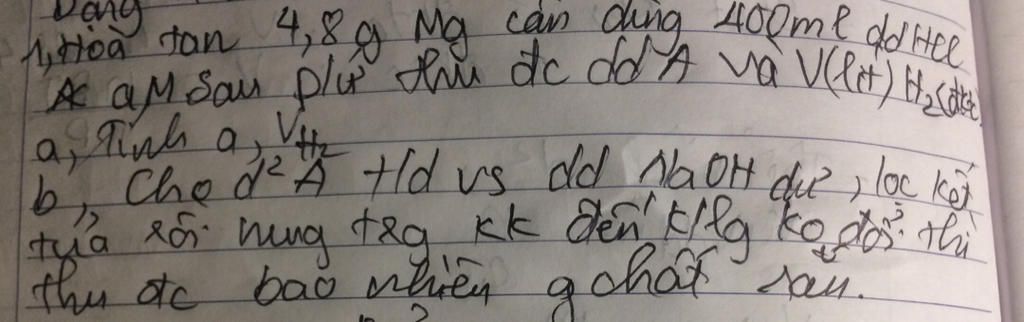 Dạng
1, Hoà tan 4,8g Mg cần dùng 400ml ddHCl
aM sau pứ thu đc dd A và V(lít) H2(đktc)
a, Tính a, VH2
b, Cho d² A t/d vs dd NaOH dư, lọc kết
tủa rồi nung trg kk đến k/lg ko đổi thì
thu đc bao nhiêu g chất rắn.